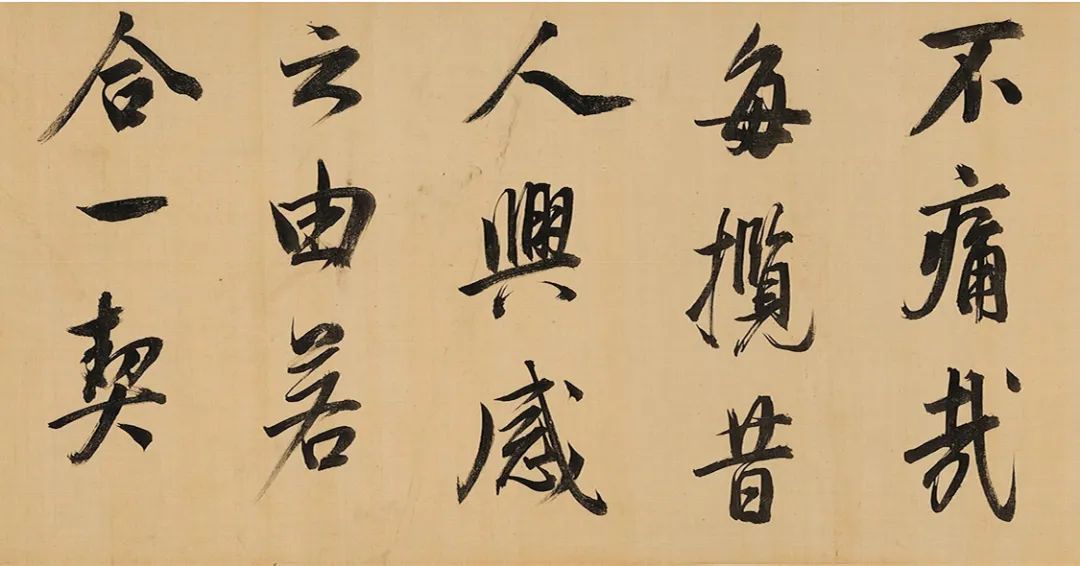 不痛哉
每攬昔
人興感
之由若
合一契